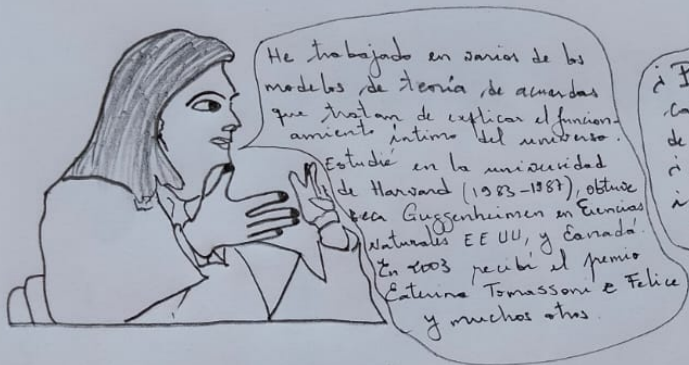 He trabajado en varios de los
modelos de teoría de acuerdas
que tratan de explicar el funcion-
amiento íntimo del universo.
Estudié en la universidad
de Harvard (1983-1987), obtuve
beca Guggenheimen en Ciencias
Naturales EE UU, y Canadá.
En 2003 recibí el premio
Caterina Tomassoni e Felice
y muchos otros.
¿
de
¿